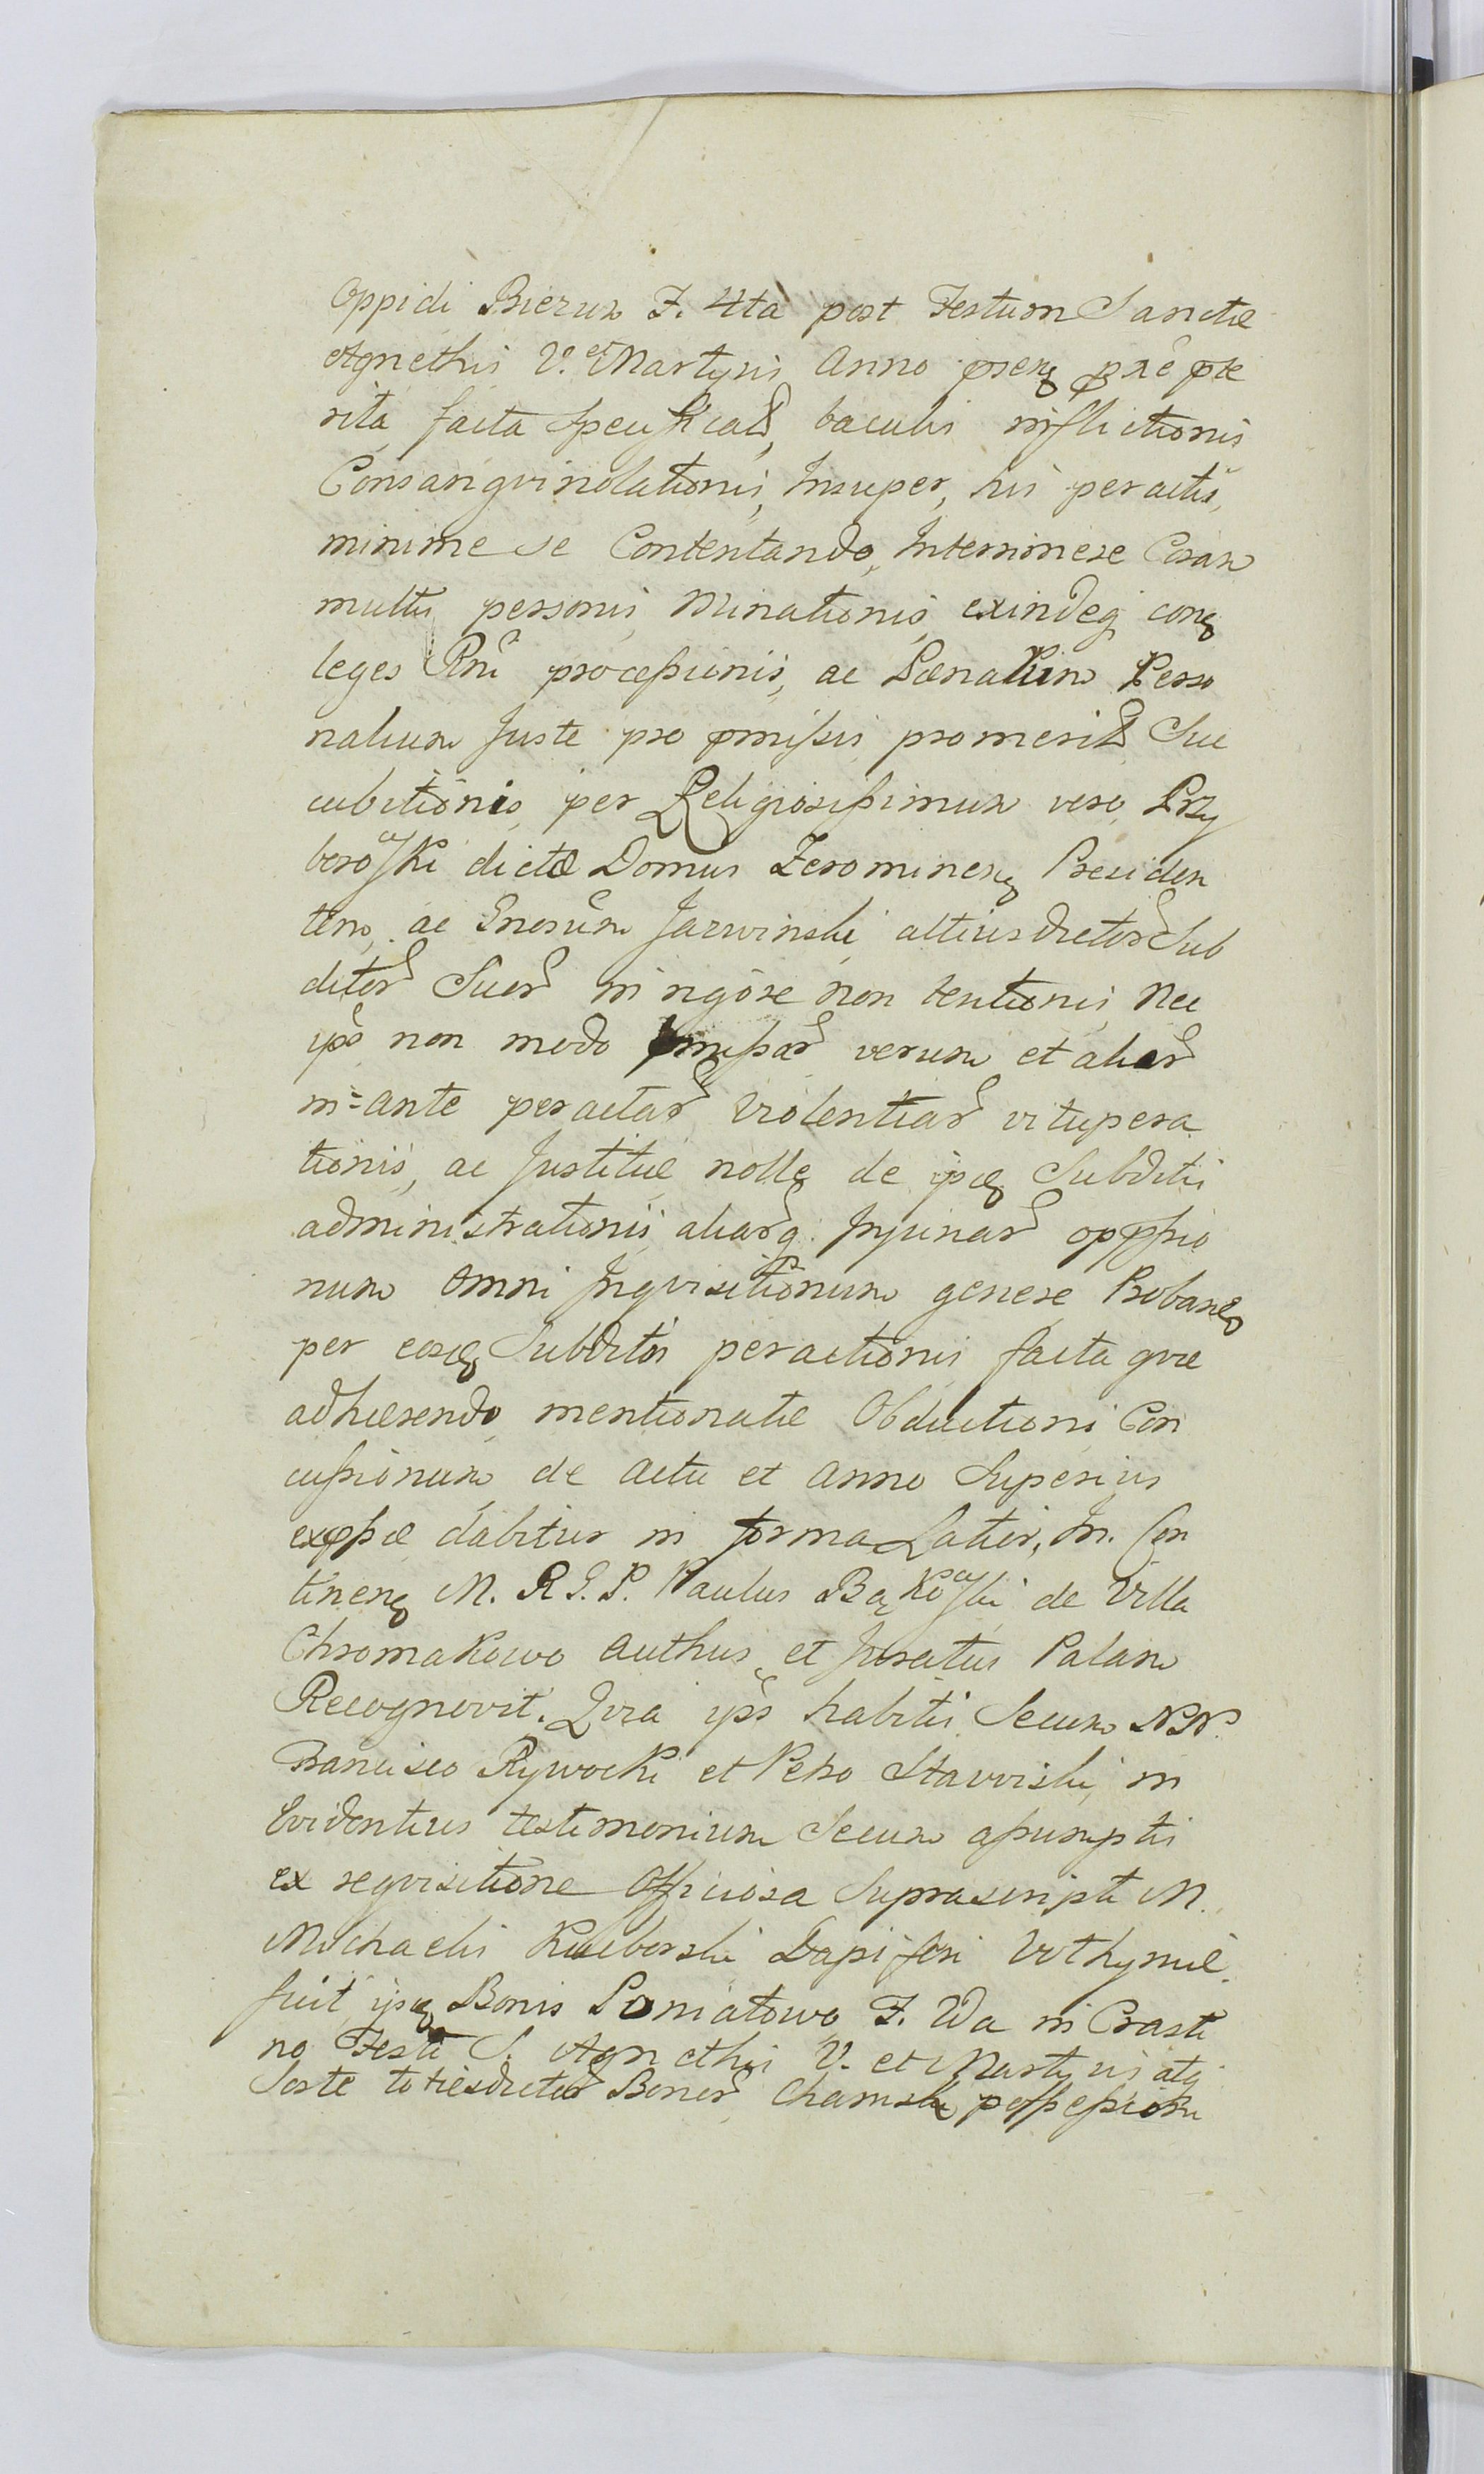 Oppidi Bierun F. 4ta post Festum Sanctæ
Agnethis V. et Martyris Anno præpte
rita facta baculis inflictionis
Consangvinolationis, Insuper, his peractis,
minime se Contentando, Intermineræ Coram
multis personis Minationis, exindeq con
leges Rni processionis, ac Pænalium Perso
nalium Juste pro pmissis promerit Suc
cubitionis, per Religiosissimum vero, Przy
boroski dictæ Domus Zerominen Presiden
tem, ac Gnosum Jarwinski, altius dictor Sub
ditor Suor in rigore non tentionis, Nec
ipso non modo pmissar verum et aliar
in=ante peractar Violentiar vitupera
tionis, ac Justitiæ nolle de Subditis
administrationis, aliarq Injuriar opp̱ssio
num Omni Inqvisitionum genere Proban
per eosd Subditos peractionis facta qvæ
adhærendo, mentionatæ Obductioni Con
cussionum, de Actu et Anno Superius
exp̱ssæ dabitur in forma Latior, In. Con
tinen M. R G. P. Paulus Bąkoski de Villa
Chromakowo Authus et Juratus Palam
Recognovit. Qvia ips habitis Secum NN.
Francisco Rywocki et Petro Stawiski, in
Evidentius testimonium Secum assumptis
ex reqvisitione Officiosa Suprascripti M.
Michaelis Dapiferi
fuit, Bonis Poniatowo, F. 2da in Crasti
no Festi S. Agnethis V. et Martyris atq
Sorte totiesdictor Bonor Chamsk possessioni